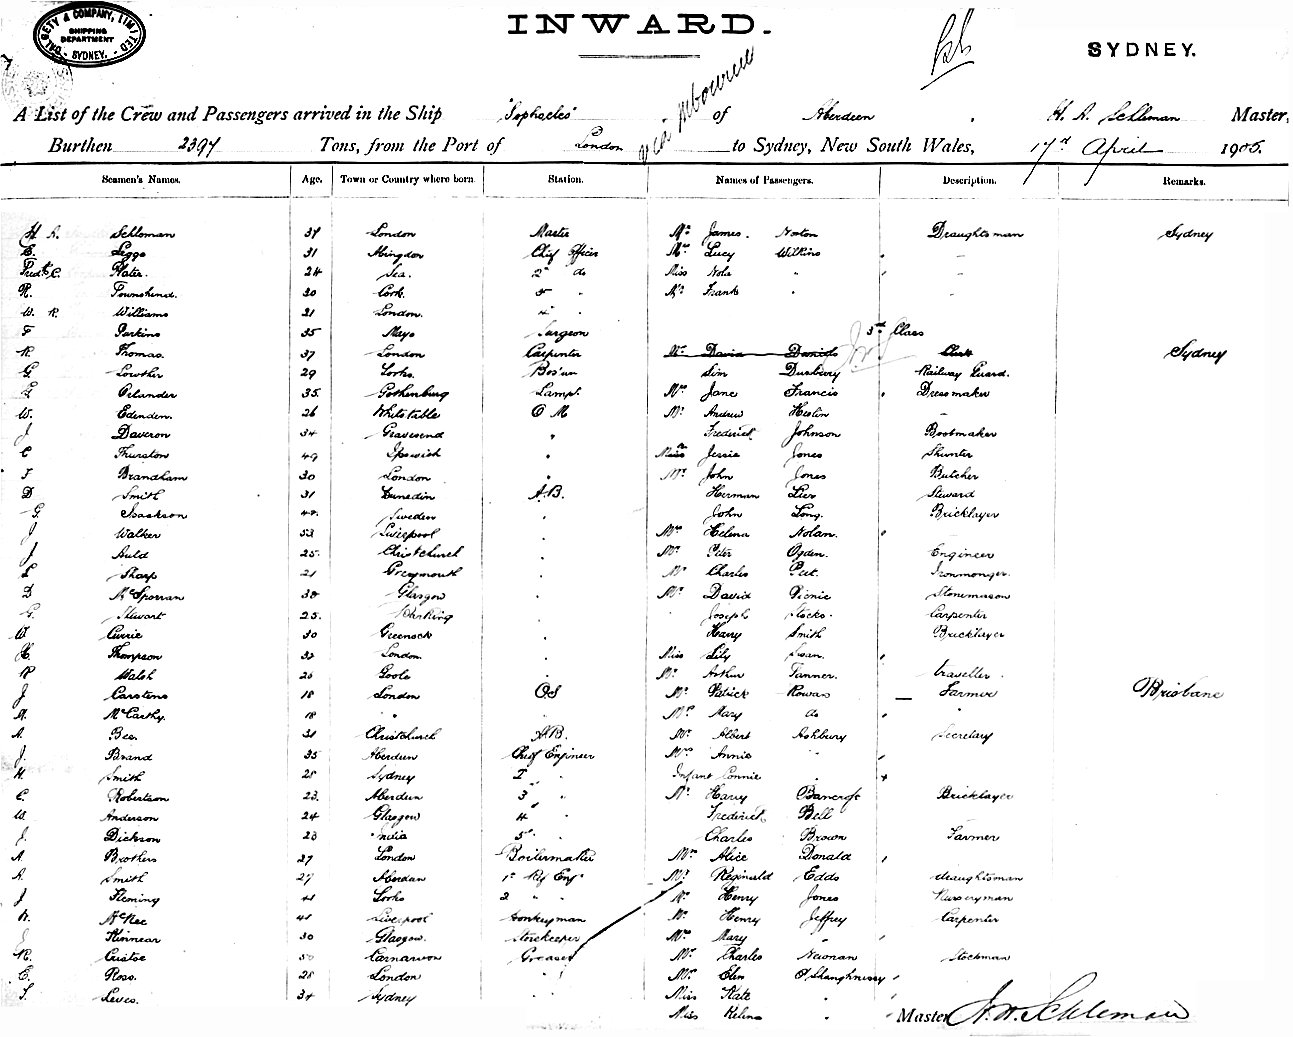 DALGETY & COMPANY, LIMITED
SHIPPING DEPARTMENT
SYDNEY.
INWARD.
SYDNEY.
A List of the Crew and Passengers arrived in the Ship "Sophocles" of Aberdeen, H. A. Schleman Master,
Burthen 2394 Tons, from the Port of London via Melbourne to Sydney, New South Wales, 17th April 1906.
Seamen's Names. Age. Town or Country where born Station. Names of Passengers. Description. Remarks.
H. A. Schleman 37 London Master Mr James Norton Draughtsman Sydney
E. Legge 31 Abingdon Chief Officer Mrs Lucy Wilkins
Fredk C. Slater 24 Sea. 2nd do Miss Nola "
R. Townshend. 30 Cork. 3 " Mr Frank "
W. R. Williams 21 London. 4 "
F Parkins 35 Mayo Surgeon 3rd Class
R. Thomas. 37 London Carpenter Mr David Daniels Clerk Sydney
G Lowther 29 Yorks. Bos'un Sim Dunbery Railway Guard.
Orlander 35. Gothenburg Lamps. Mrs Jane Francis Dressmaker
W. Edenden. 26 Whitstable Q M Mr Andrew Heslin
J Daveron 34 Gravesend " Frederick Johnson Bootmaker
C Thurston 49 Ipswich " Jessie Jones Shunter
F Brandham 30 London " Mr John Jones Butcher
D Smith 31 Dunedin A.B. Herman Lier Steward
G. Isackson 42. Sweden John Long. Bricklayer
J Walker 53 Liverpool Mrs Helena Nolan.
J Auld 25. Christchurch Mr Peter Ogden. Engineer
L Sharp 21 Greymouth Mr Charles Peet. Ironmonger.
D McSporran 38 Glasgow Mr David Pirnie Stonemason
G. Stewart 25. Barking Joseph Stocks. Carpenter
A Currie 30 Greenock Harry Smith Bricklayer
H. Thompson 32 London. Miss Lily Swan.
R Walsh 26 Goole Mr Arthur Tanner. traveller.
J Carstens 18 London OS Mr Patrick Rowan Farmer Brisbane
M. McCarthy. 18 " Mrs Mary do "
A. Bee. 31 Christchurch A.B. Mr Albert Ashbury Secretary
J. Brand 35 Aberdeen Chief Engineer Mrs Annie "
H. Smith 28 Sydney 2 " Infant Connie "
C. Robertson 23. Aberdeen 3 " Mr Harry Bancroft Bricklayer
W. Anderson 24 Glasgow 4 " Frederick Bell
J. Dickson 23 India 5 " Charles Brown Farmer
A. Brothers 27 London Boilermaker Mrs Alice Donald
A. Smith 27 Aberdeen 1st Rfg Engr Mr Reginald Edds draughtsman
J Fleming 41 Yorks 2 " " Mr Henry Jones Nurseryman
R. McKee 41 Liverpool Donkeyman Mr Henry Jeffrey Carpenter
Kinnear 30 Glasgow. Storekeeper Mrs Mary "
R. 50 Carnarvon Greaser Mr Charles Noonan Stockman
E. Ross. 28 London " Mrs Ellen O'Shaughnessy
34 Sydney " Miss Kate "
Miss Helena "
Master H. A. Schleman